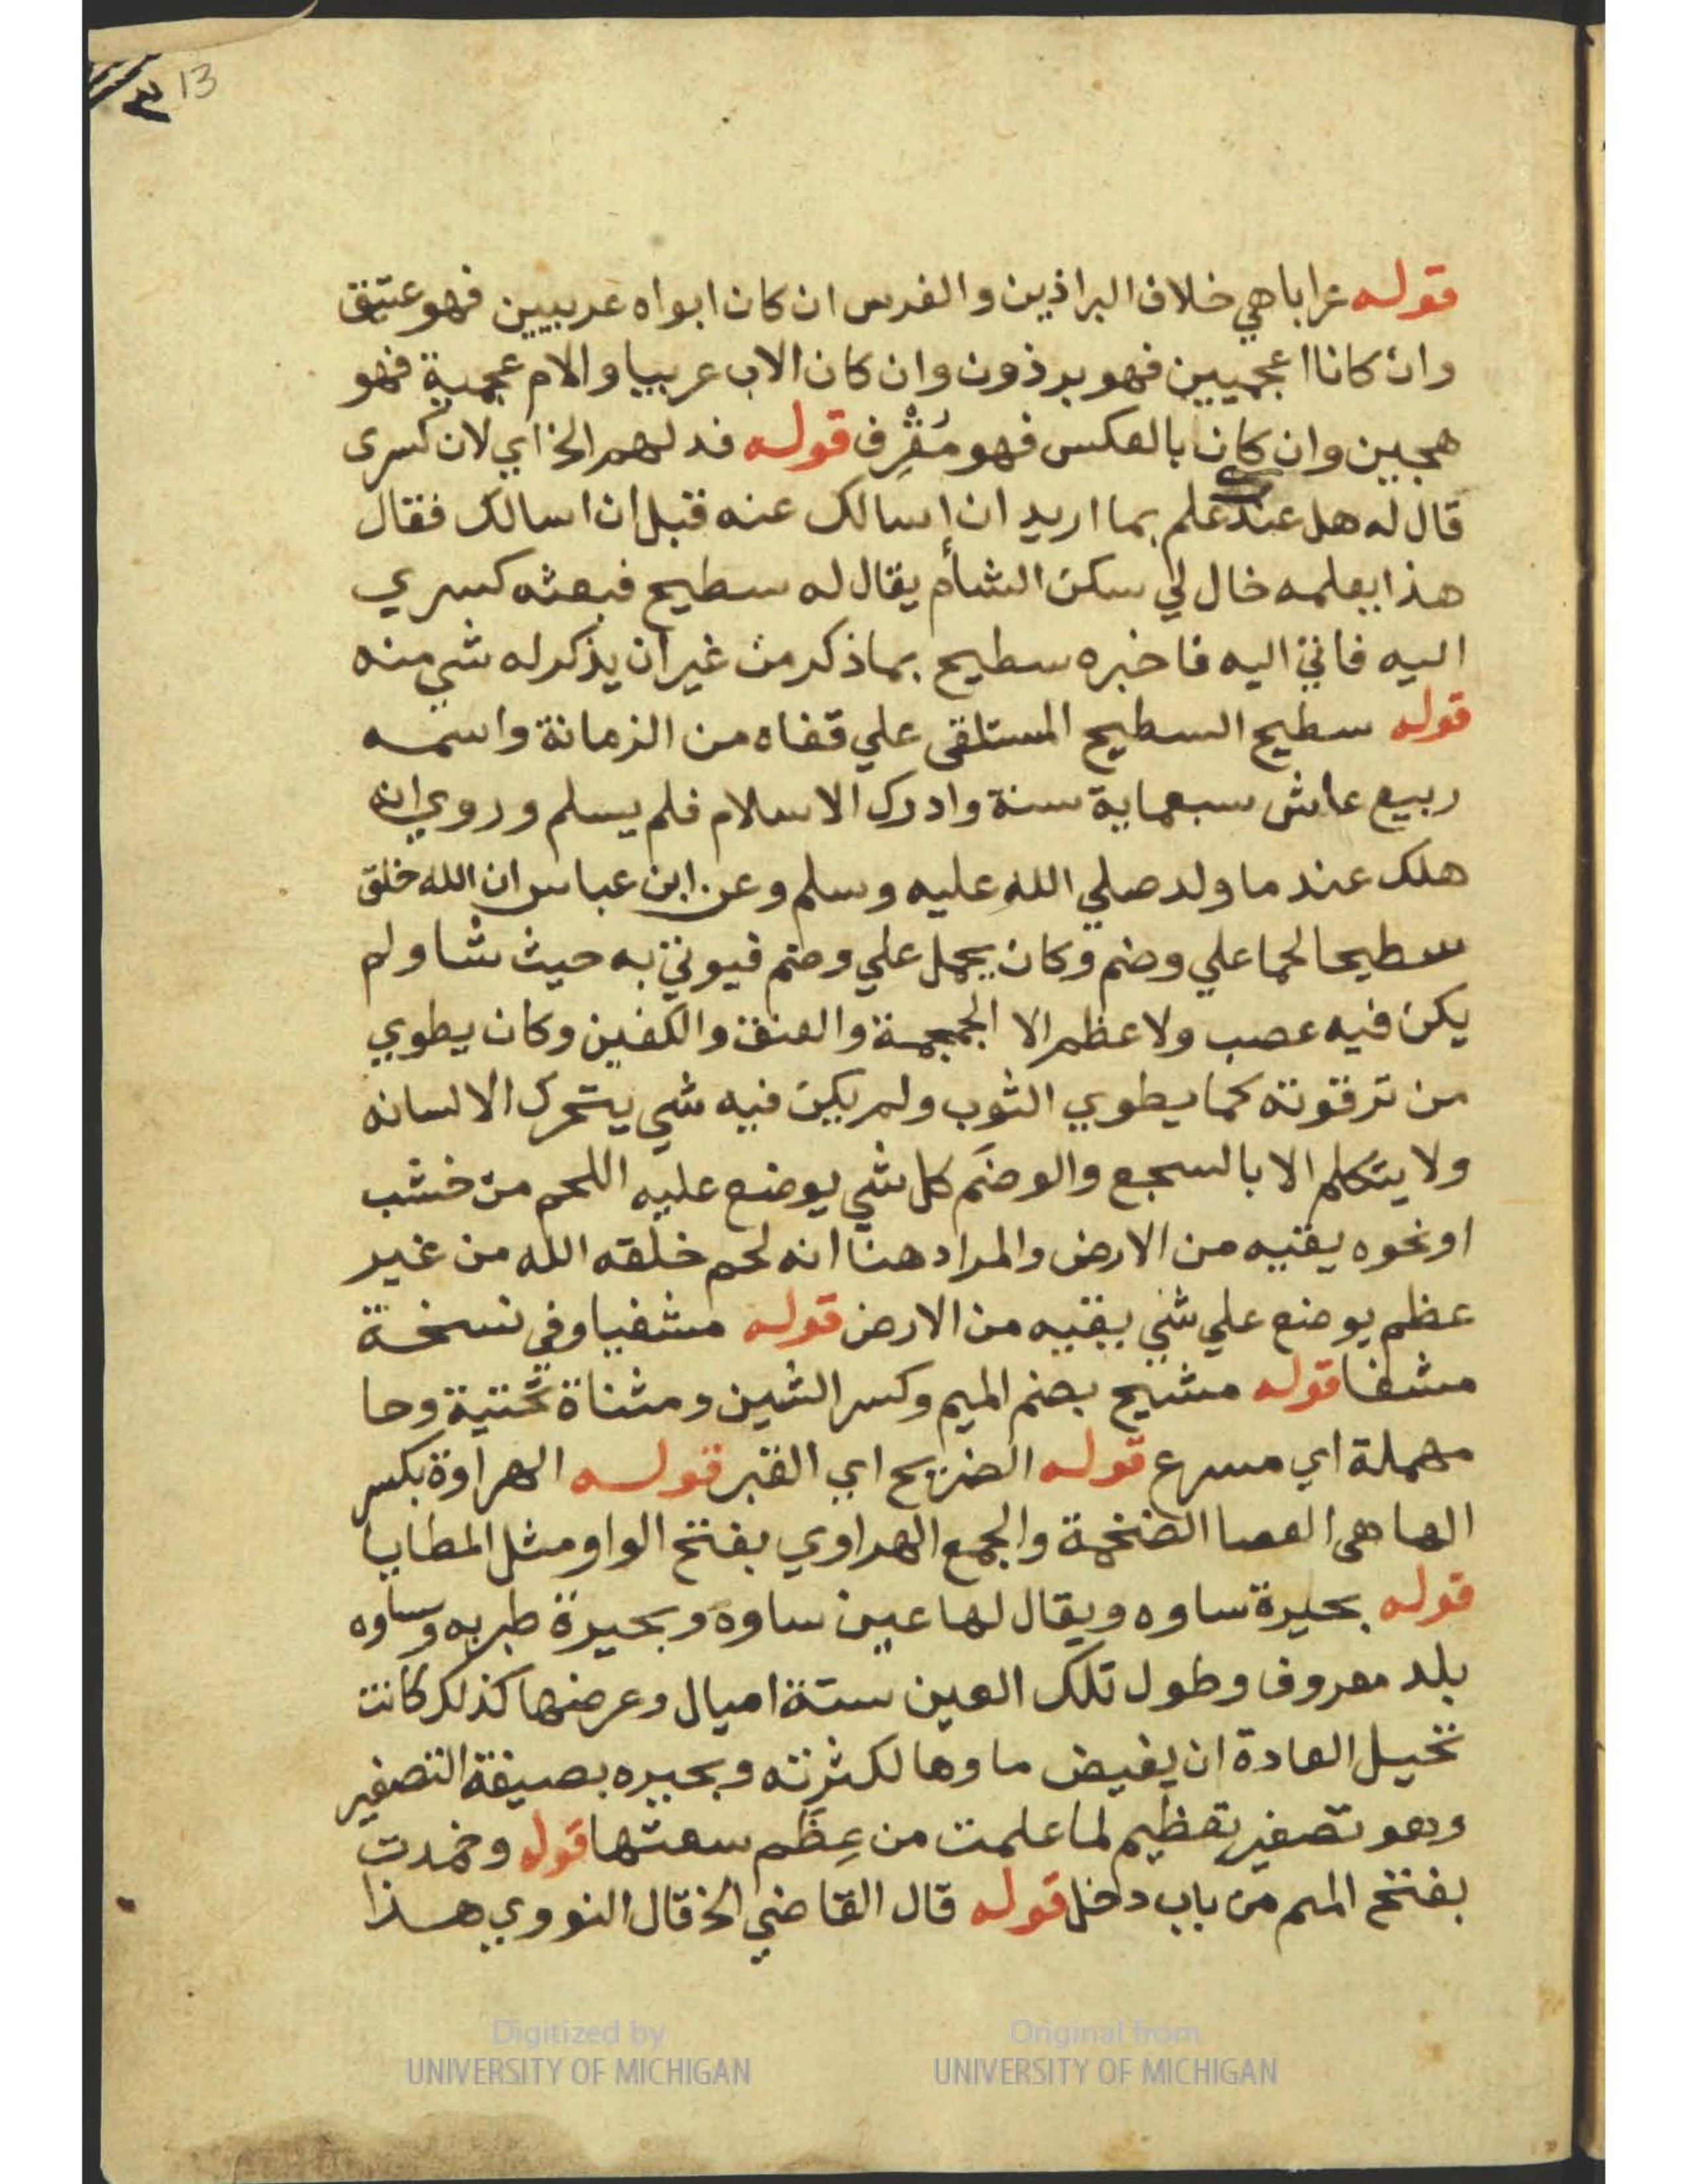 13
٣
قوله عرابا هي خلاف البراذين والفرس ان كان ابواه عربيين فهو عتيق
وان كانا اعجميين فهو برذون وان كان الاب عربيا والام عجمية فهو
هجين وان كان بالعكس فهو مُقْرِف قوله فد لهم الخ اي لان كسرى
قال له هل عندك علم بما اريد ان اسالك عنه قبل ان اسالك فقال
هذا يعلمه خال لي سكن الشأم يقال له سطيح فبعثه كسري
اليه فاتي اليه فاخبره سطيح بما ذكر من غير ان يذكر له شي منه
قوله سطيح السطيح المستلقى علي قفاه من الزمانة واسمه
ربيع عاش سبعماية سنة وادرك الاسلام فلم يسلم وروي انه
هلك عند ما ولد صلي الله عليه وسلم وعن ابن عباس ان الله خلق
سطيحا لحما علي وضم وكان يحمل علي وضم فيوتي به حيث شا ولم
يكن فيه عصب ولا عظم الا الجمجمة والعنق والكفين وكان يطوي
من ترقوته كما يطوي الثوب ولم يكن فيه شي يتحرك الا لسانه
ولا يتكلم الا بالسجع والوضَم كل شي يوضع عليه اللحم من خشب
او نحوه يقيه من الارض والمراد هنا انه لحم خلقه الله من غير
عظم يوضع علي شي يقيه من الارض قوله مشفيا وفي نسخة
مشفا قوله مشيح بضم الميم وكسر الشين ومثناة تحتية وحا
مهملة اي مسرع قوله الضريح اي القبر قوله الهراوة بكسر
الها هى العصا الضخمة والجمع الهراوي بفتح الواو مثل المطايا
قوله بحيرة ساوه ويقال لها عين ساوه وبحيرة طبريه وساوه
بلد معروف وطول تلك العين ستة اميال وعرضها كذلك كانت
تحيل العادة ان يفيض ماوها لكثرته وبحيره بصيغة التصغير
وهو تصغير تعظيم لما علمت من عِظَم سعتها قوله وخمدت
بفتح الميم من باب دخل قوله قال القاضي الخ قال النووي هذا
Digitized by
UNIVERSITY OF MICHIGAN
Original from
UNIVERSITY OF MICHIGAN